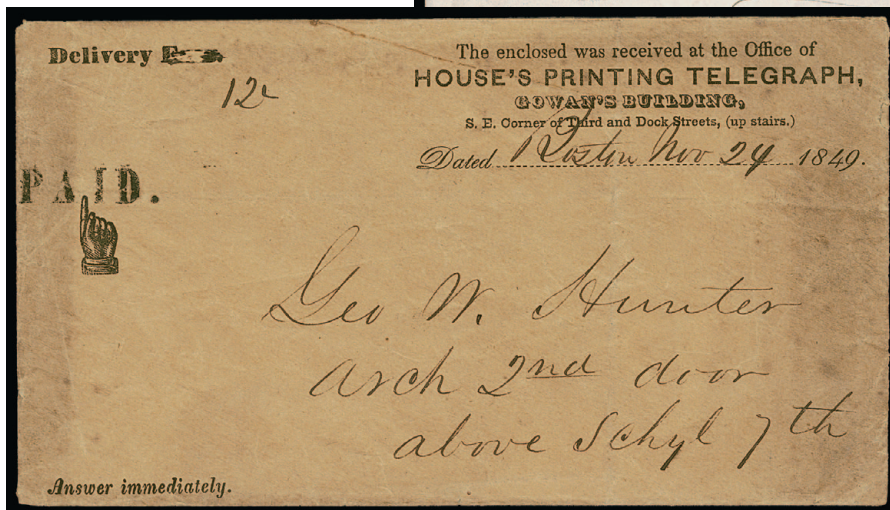 Delivery
12c
The enclosed was received at the Office of
HOUSE'S PRINTING TELEGRAPH,
GOWAN'S BUILDING,
S. E. Corner of Third and Dock Streets, (up stairs.)
Dated Boston Nov 24 1849.
PAID.
Geo W. Hunter
Arch 2nd door
above Schyl 7th
Answer immediately.